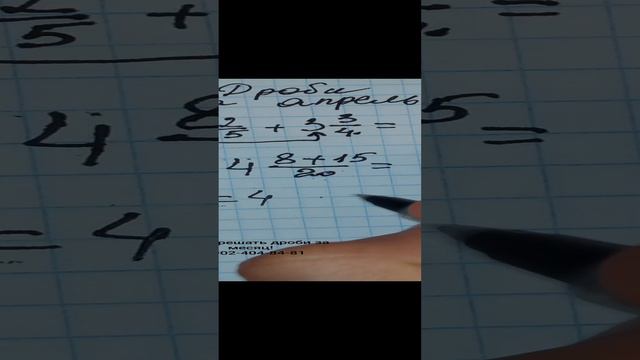 Дроби
апрель
2/5 + 3 3/4 =
4 (8+15)/20 =
= 4
решать дроби за
месяц!
02-404-84-81